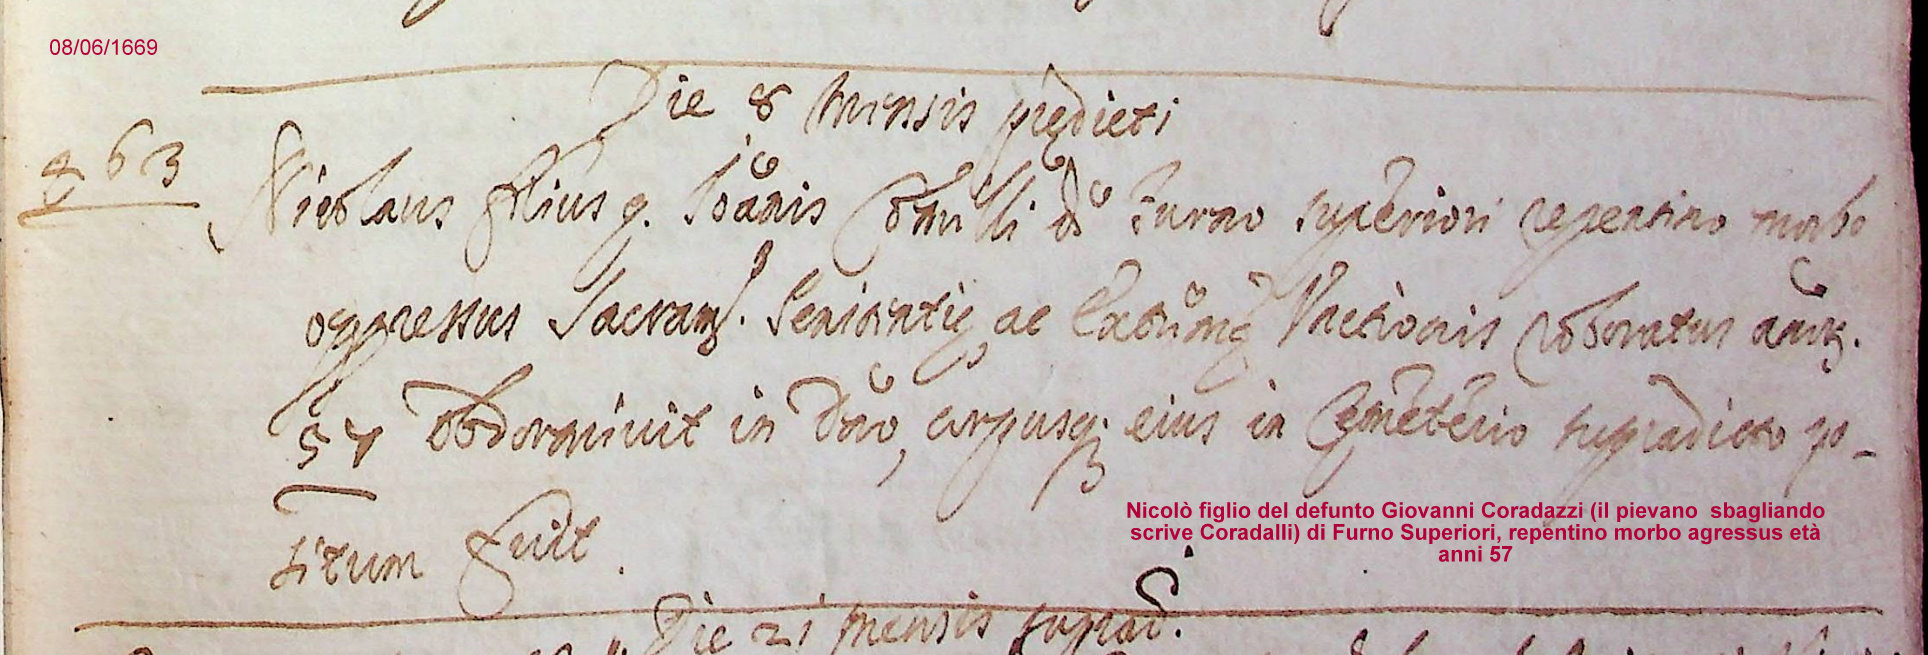 08/06/1669
Die 8 mensis prędicti
863
Nicolaus filius q. Ioãnis dẽ Furno superiori repentino morbo
oppressus Sacram. ac Vnctionis roboratus
57 Obdormiuit in Dño, corpusq; eius in Cęmeterio supradicto po-
situm fuit.
Nicolò figlio del defunto Giovanni Coradazzi (il pievano sbagliando
scrive Coradalli) di Furno Superiori, repentino morbo agressus età
anni 57
Die 21 mensis suprad.